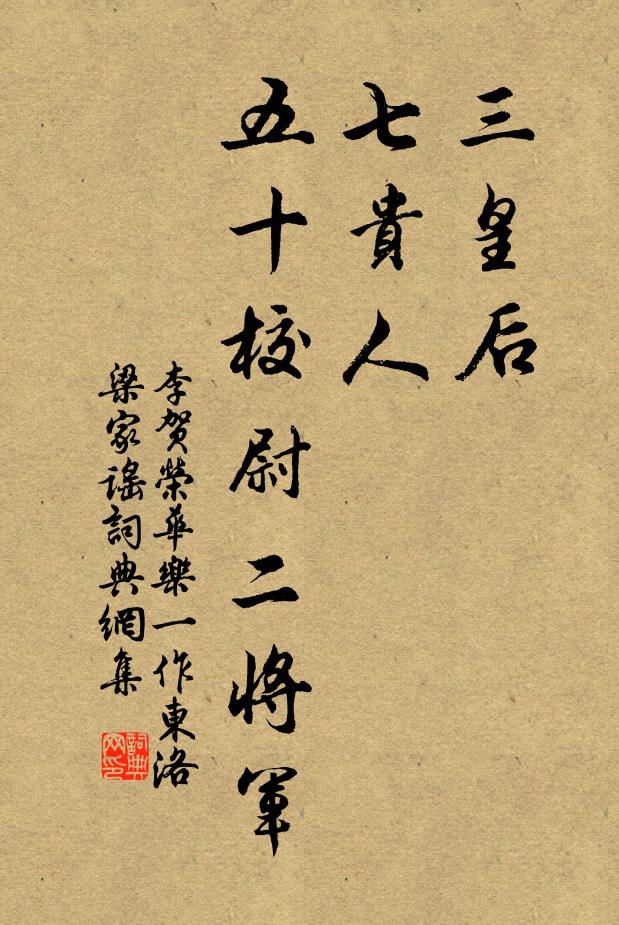 三皇后
七貴人
五十校尉二將軍
李贺榮華樂一作東洛
梁家謠詞典網集
詞典网印